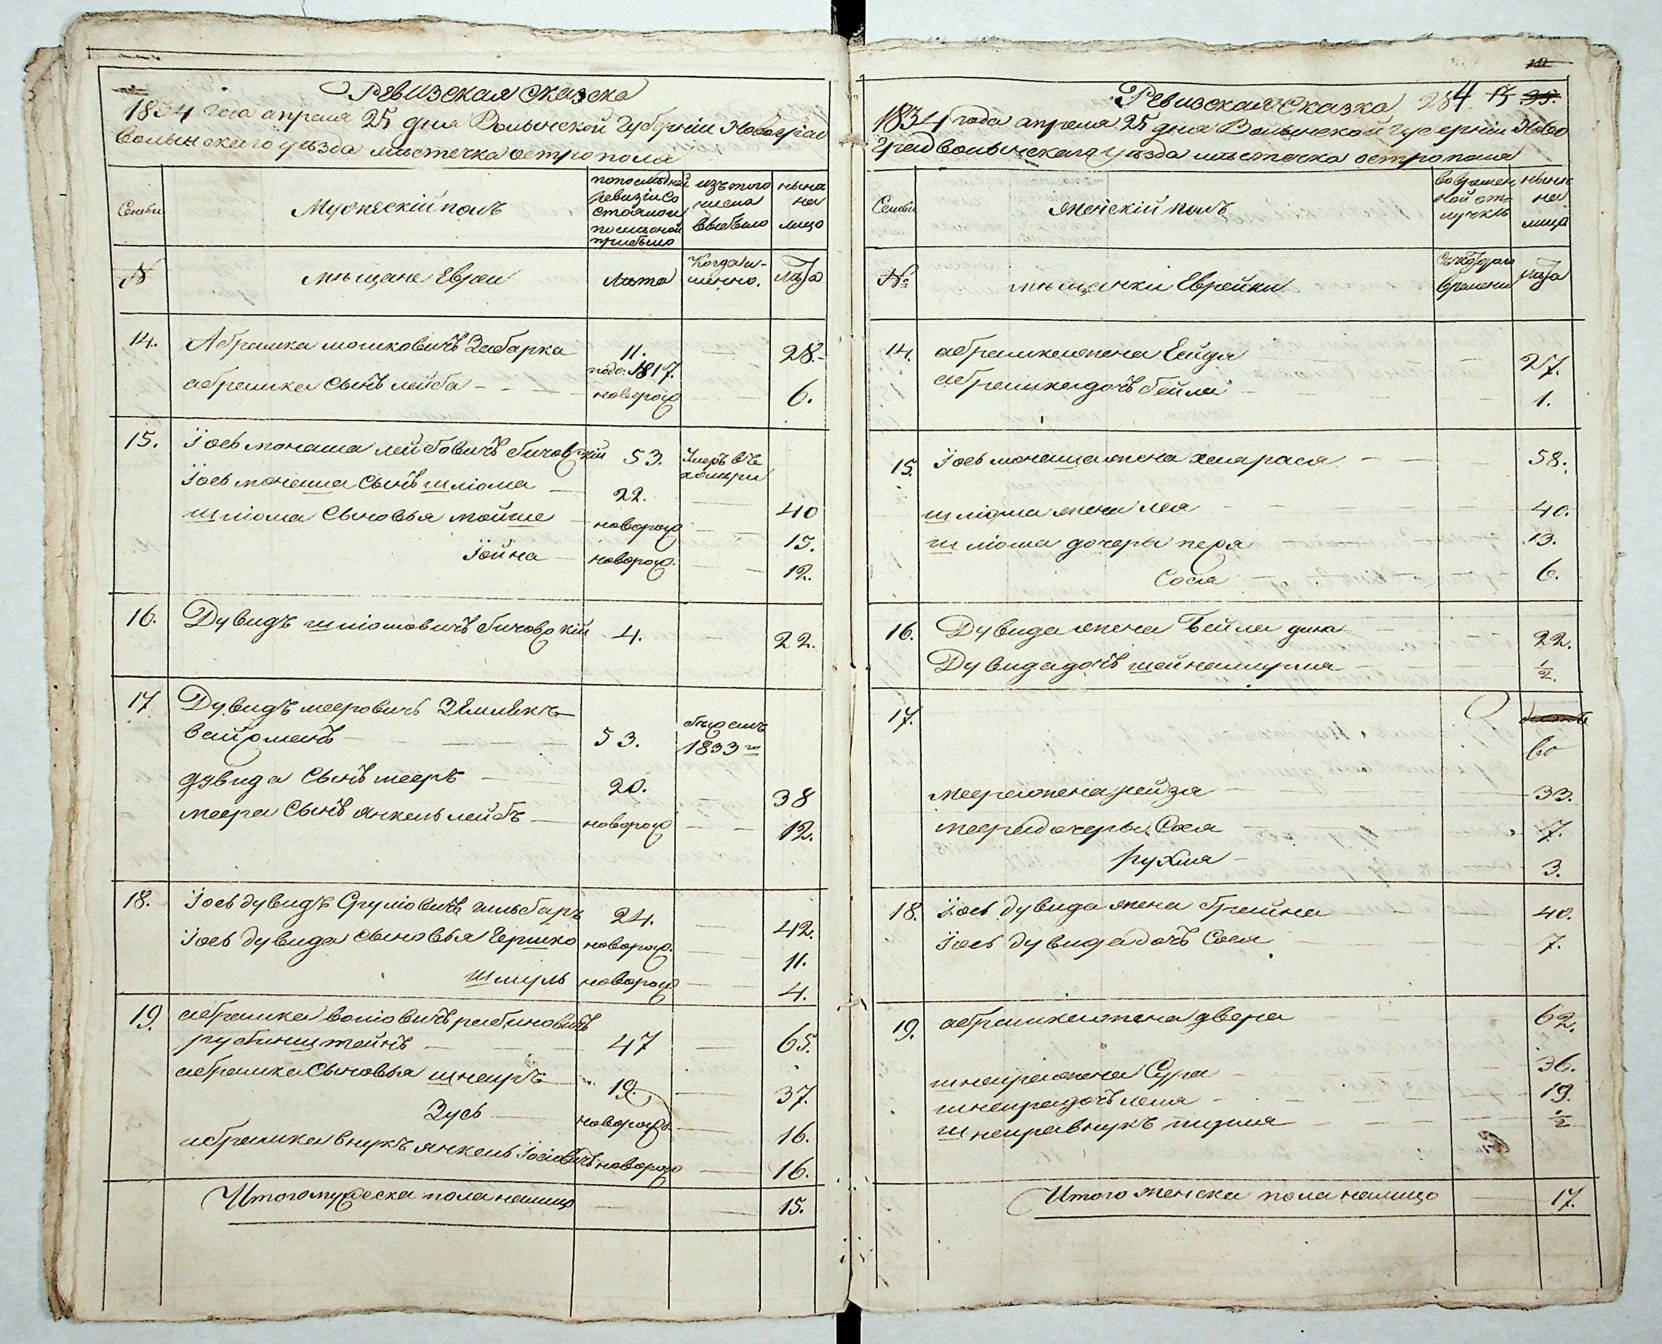 Ревизская сказска
1834 года апреля 25 дня Волынской Губернiи Новоград
волынского уѣзда мѣстечка острополя
Семьи
Мужескiй полъ
по последней ревизiи состояло и после оной прибыло
изъ того числа выбыло
ныне на лицо
№
мѣщане Евреи
Лѣта
Когда именно.
лѣта
14.
Абрамка мошковичъ Забарка
11.
28.
подо. 1817.
абрамка сынъ лейба
новорож
6.
15.
Iось монаша лейбовичъ бичовскiй
53.
Умеръ въ
холеры
Iось монаша сынъ шлiома
22.
40
шлiома сыновья мойше
новорож
15.
Iойна
новорож.
12.
16.
Дувидъ шлiомовичъ бичовскiй
4.
22.
17
Дувидъ мееровичъ
вайсманъ
53.
1833 го
дувида сынъ мееръ
20.
38
меера сынъ янкель лейбъ
новорож
12.
18.
Iось дувидъ Сруліовичъ гильбаръ
24.
42.
Iось дувида сыновья Гершко
новорож.
11.
шмуль
новорож
4.
19.
абрамка волiовичъ рабиновичъ
рубинштейнъ
47
65.
абрамка сыновья шнеиръ
19.
37.
Зусь
новорож.
16.
абрамка внукъ янкель Iосiовичъ
новорож
16.
Итого мужеска пола налицо
15.
Ревизская Сказка 284. 15 35.
1834 года апреля 25 дня Волынской Губернiи Ново
градволынскаго уѣзда мѣстечка острополя
Семьи
женскiй полъ
во временной отлучкѣ
ныне на лицо
№
мѣщанки Еврейки
Съ котораго времени
лѣта
14.
абрамка жена Ейдя
27.
абрамка дочъ бейла
1.
15.
Iось монаша жена хаярася
58.
шлiома жена лея
40.
шлiома дочеры перя
13.
Сося
6.
16.
Дувида жена Бейла дина
22.
Дувида дочъ шейнамирля
½.
17.
меера жена рейза
33.
меера дочеры Сося
7.
рухля
3.
18.
Iось дувида жена брейна
40.
Iось дувида дочъ Сося
7.
19.
абрамка жена двера
62.
шнеира жена Сура
36.
шнеира дочъ
19.
шнеира внукъ
½
Итого женска пола налицо
17.